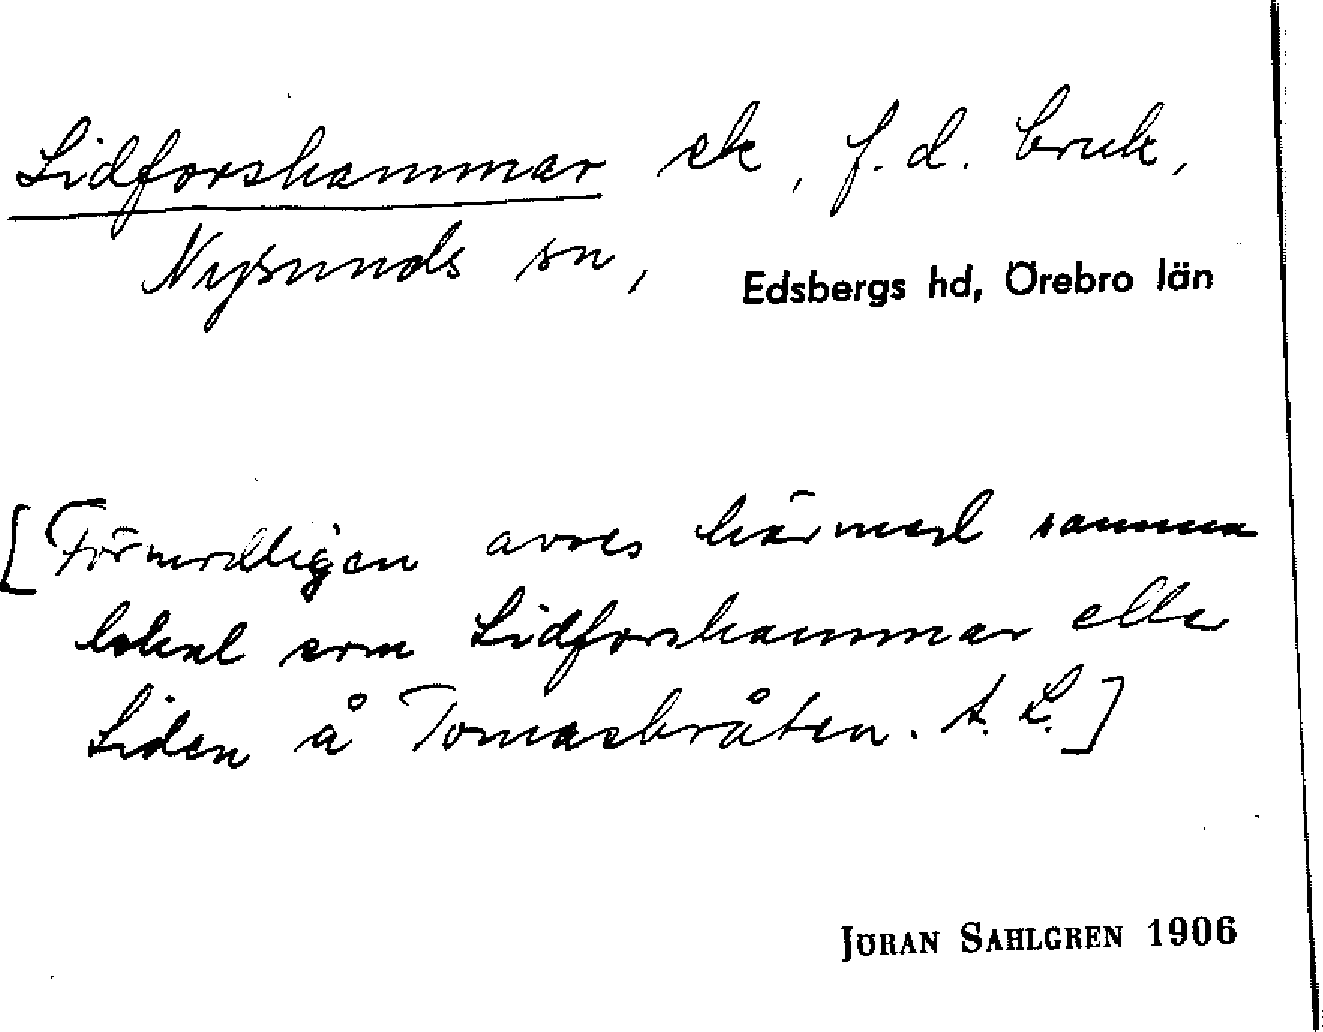 Lidforshammar ek, f.d. bruk,
Nysunds sn, Edsbergs hd, Örebro län
[Förmodligen avses härmed samma
lokal som Lidforshammar eller
Liden å Tomasbråten. A. L.]
JÖRAN SAHLGREN 1906